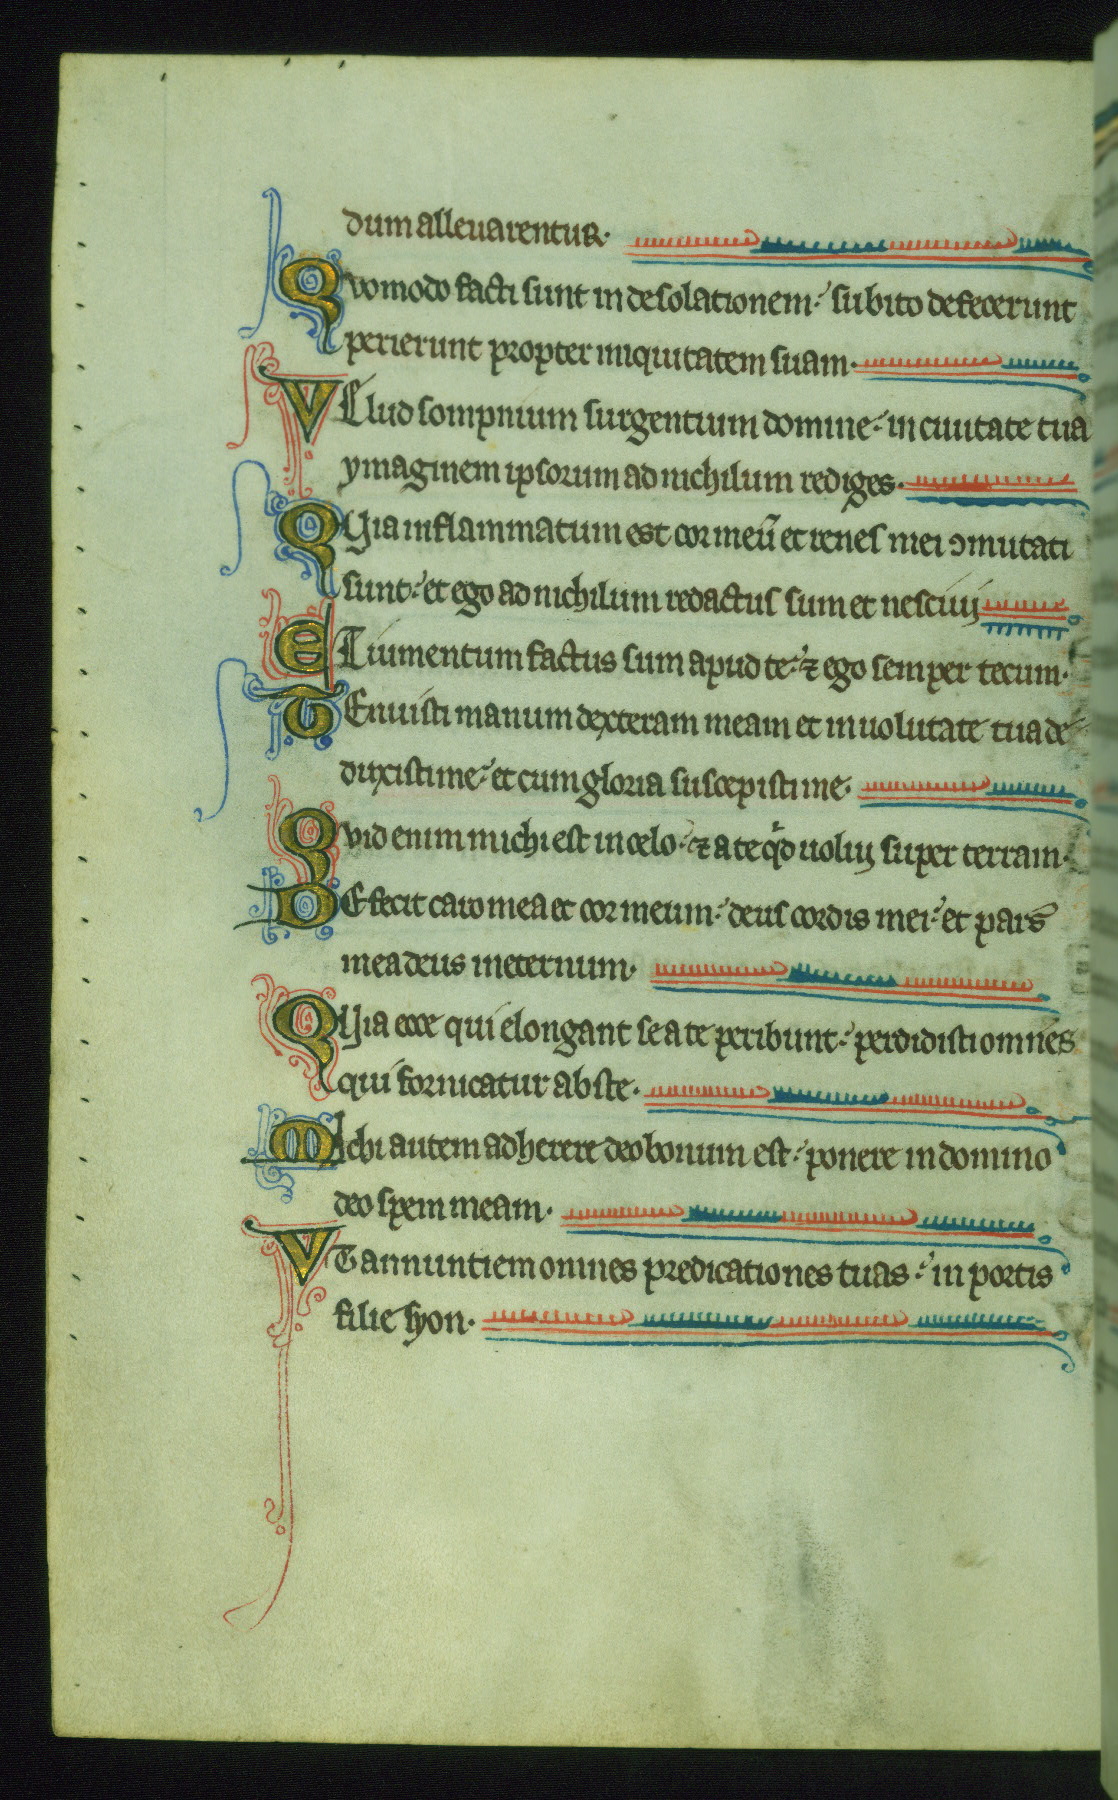 dum alleuarentur·
Quomodo facti sunt in desolationem· subito defecerunt
perierunt propter iniquitatem suam·
Velud sompnium surgentium domine· in ciuitate tua
ymaginem ipsorum ad nichilum rediges·
Quia inflammatum est cor meũ et renes mei ꝯmutati
sunt· et ego ad nichilum redactus sum et nesciui
Et iumentum factus sum apud te· ⁊ ego semper tecum·
Tenuisti manum dexteram meam et in uolutate tua de
duxisti me· et cum gloria suscepisti me·
Quid enim michi est in celo· ⁊ a te qͥd uolui super terram·
Defecit caro mea et cor meum· deus cordis mei· et pars
mea deus in eternum·
Quia ecce qui elongant se a te peribunt· perdidisti omnes
qui fornicatur abs te·
Michi autem adherere deo bonum est· ponere in domino
deo spem meam·
Vt annuntiem omnes predicationes tuas· in portis
filie syon·